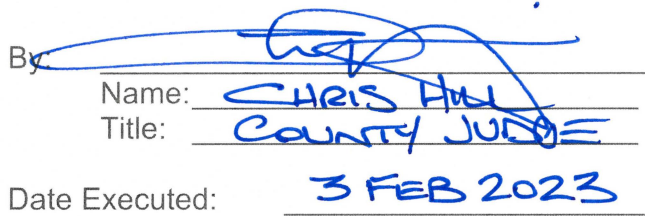 By:
Name: CHRIS HILL
Title: COUNTY JUDGE
Date Executed: 3 FEB 2023